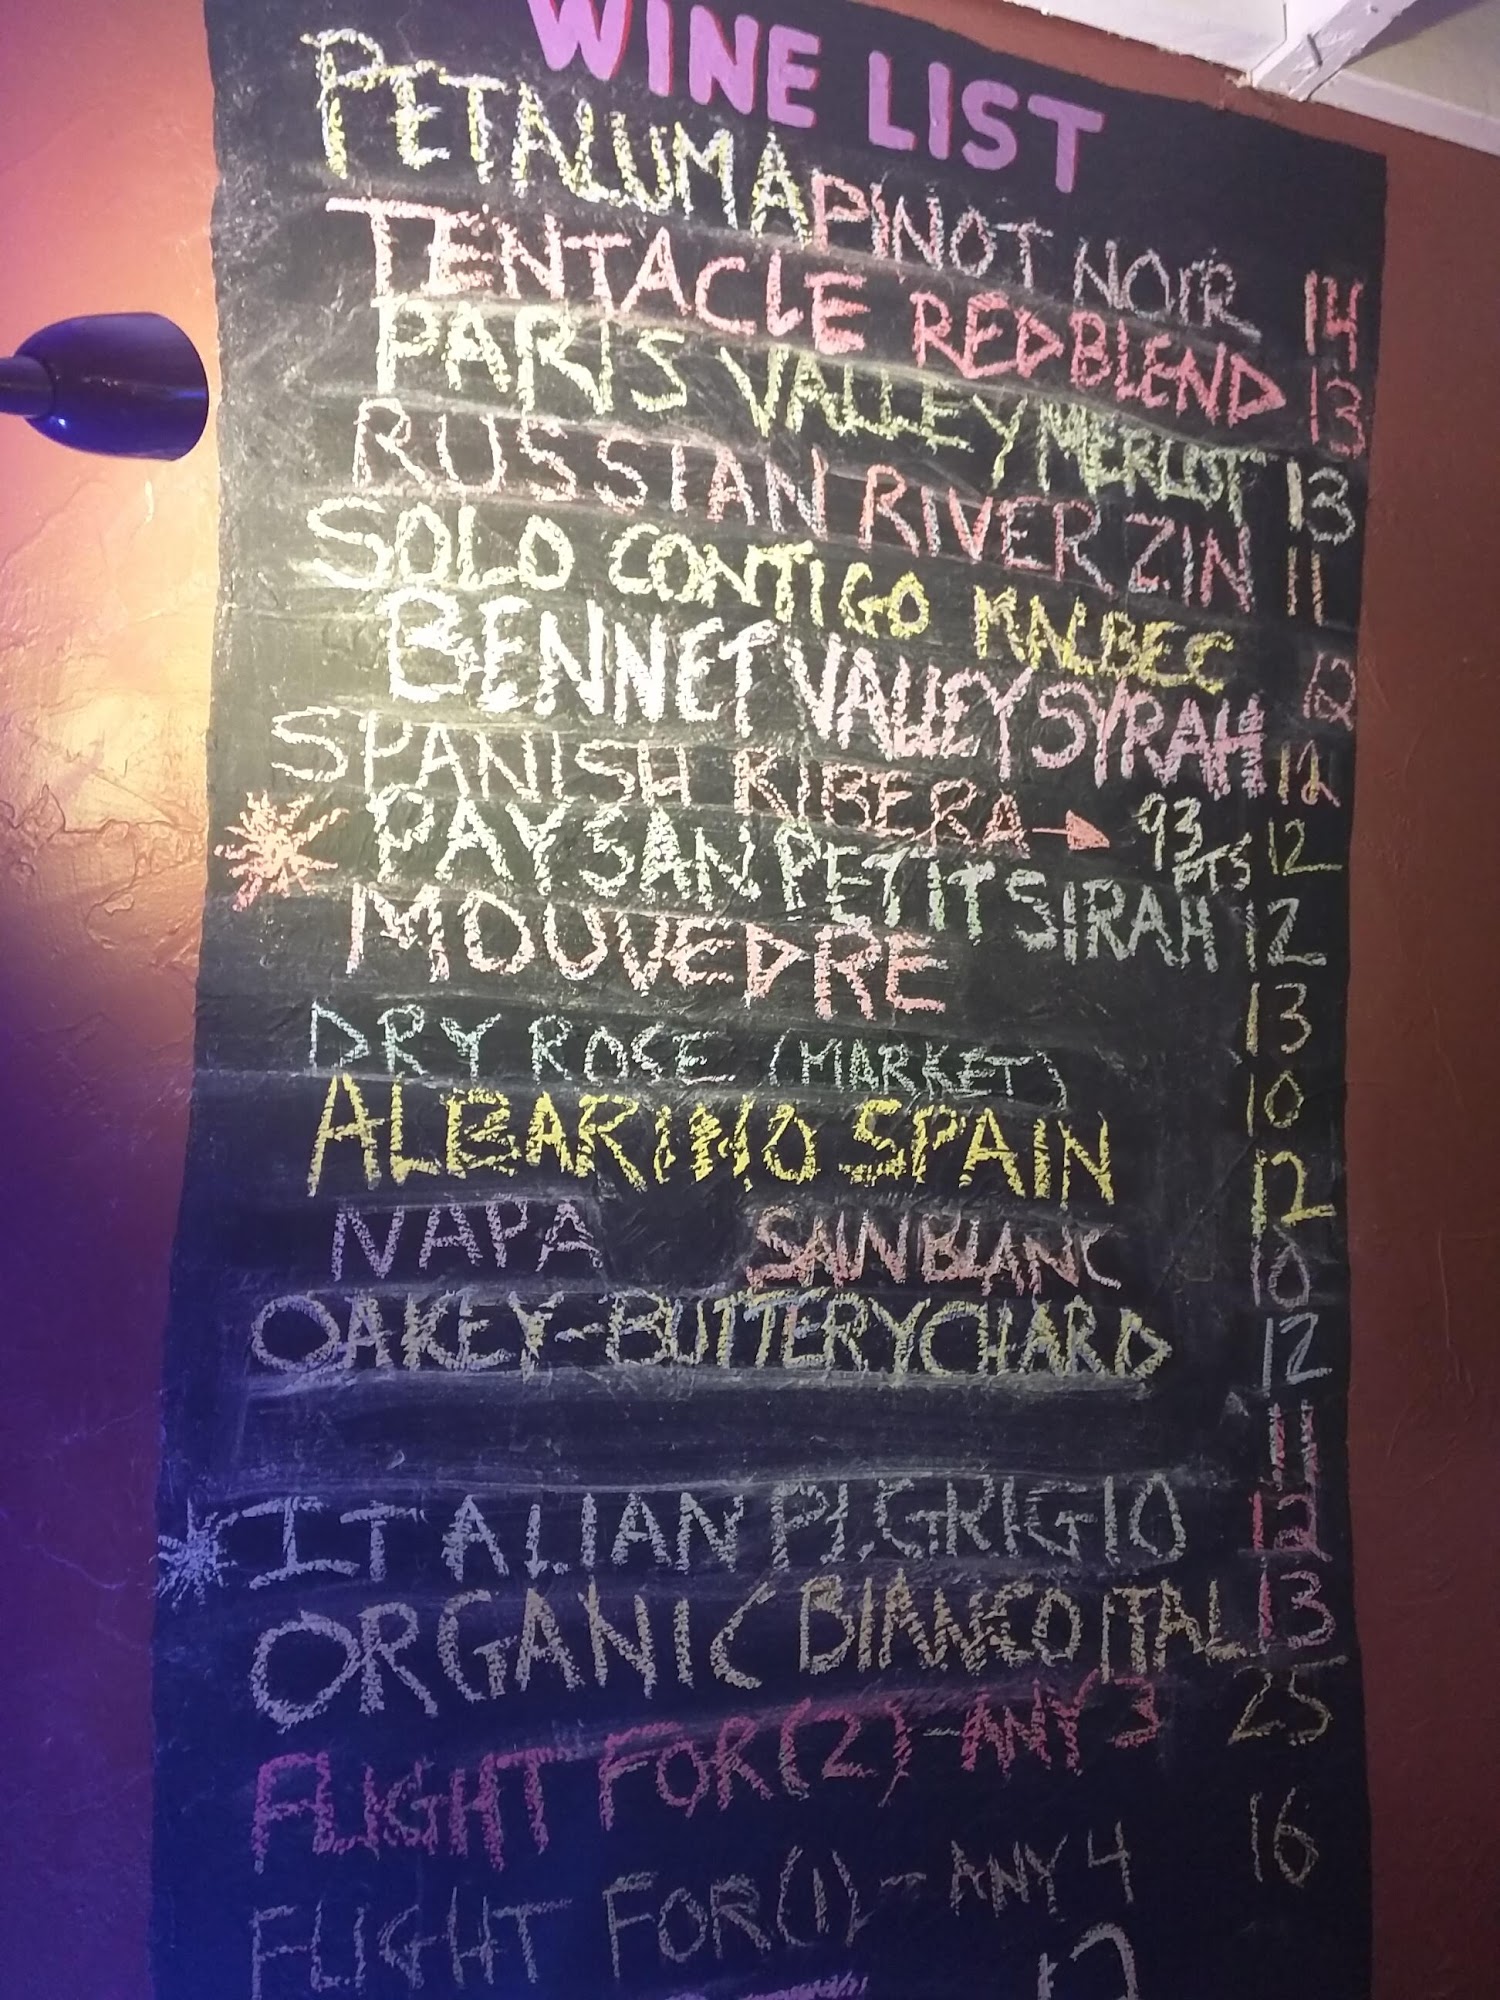 WINE LIST
PETALUMA PINOT NOIR 14
TENTACLE RED BLEND 13
PARIS VALLEY MERLOT 13
RUSSIAN RIVER ZIN 11
SOLO CONTIGO MALBEC 12
BENNET VALLEY SYRAH 12
SPANISH RIBERA → 93 PTS 12
PAYSAN PETIT SIRAH 12
MOUVEDRE 13
DRY ROSE (MARKET) 10
ALBARINO SPAIN 12
NAPA SAUV BLANC 10
OAKEY-BUTTERY CHARD 12
11
ITALIAN PI.GRIGIO 12
ORGANIC BIANCO ITAL 13
FLIGHT FOR (2) - ANY 3 25
FLIGHT FOR (1) - ANY 4 16